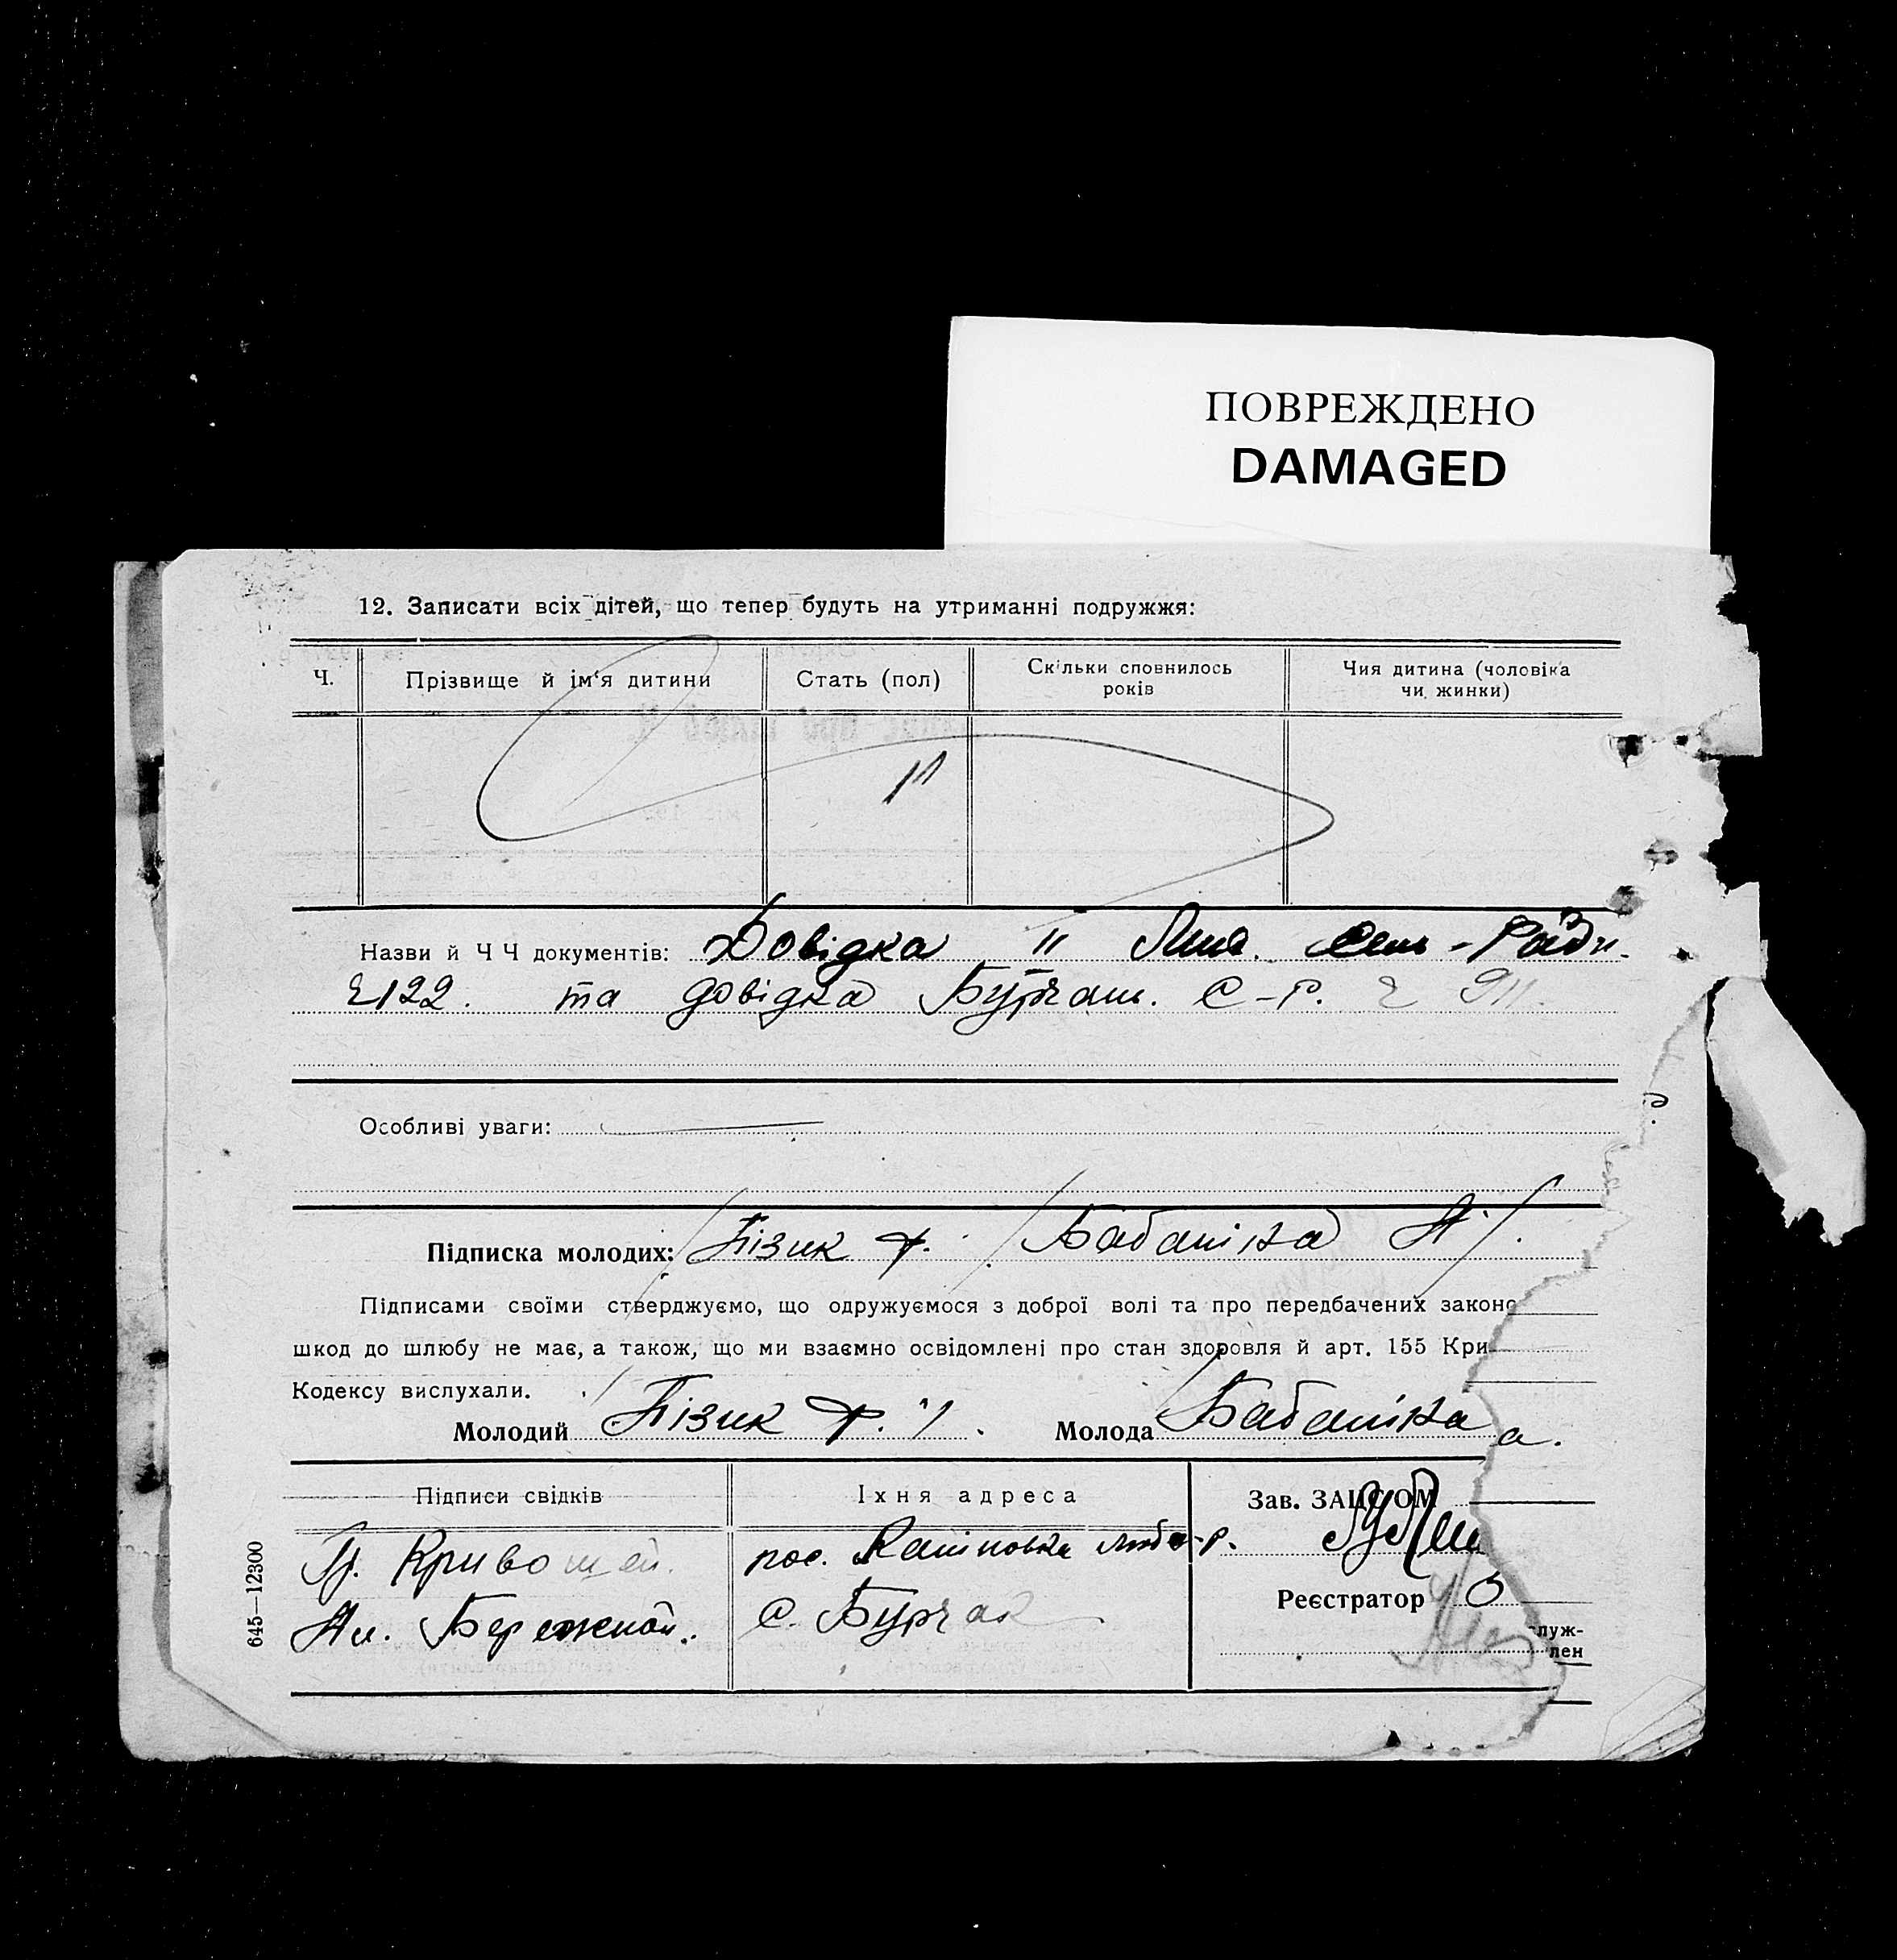 ПОВРЕЖДЕНО
DAMAGED
12. Записати всіх дітей, що тепер будуть на утриманні подружжя:
Ч. Прізвище й ім'я дитини Стать (пол) Скільки сповнилось років Чия дитина (чоловіка чи жинки)
"
Назви й Ч Ч документів: Довідка " Сель-Ради
122. та довідка Бурчац. С-Р. ч 911.
Особливі уваги:
Підписка молодих: Пізик Ф. Бабаніна
Підписами своїми стверджуємо, що одружуємося з доброї волі та про передбачених законо
шкод до шлюбу не має, а також, що ми взаємно освідомлені про стан здоровля й арт. 155 Кри
Кодексу вислухали.
Молодий Пізик Ф. Молода Бабаніна
Підписи свідків Їхня адреса Зав. ЗАЦСОМ
Кривошей. пос.
Бережной. С. Бурчак Реєстратор
луж-
лен
645—12300